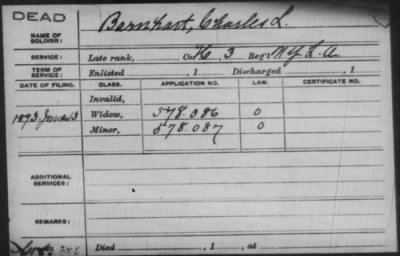 DEAD
NAME OF SOLDIER: Barnhart, Charles L.
SERVICE: Late rank, Co. K, 3 Reg't N Y L. A.
TERM OF SERVICE: Enlisted , 1 Discharged , 1
DATE OF FILING. CLASS. APPLICATION NO. LAW. CERTIFICATE NO.
Invalid,
1893, June 13 Widow, 578.086 O
Minor, 578.087 O
ADDITIONAL SERVICES:
REMARKS:
Died , 1 , at